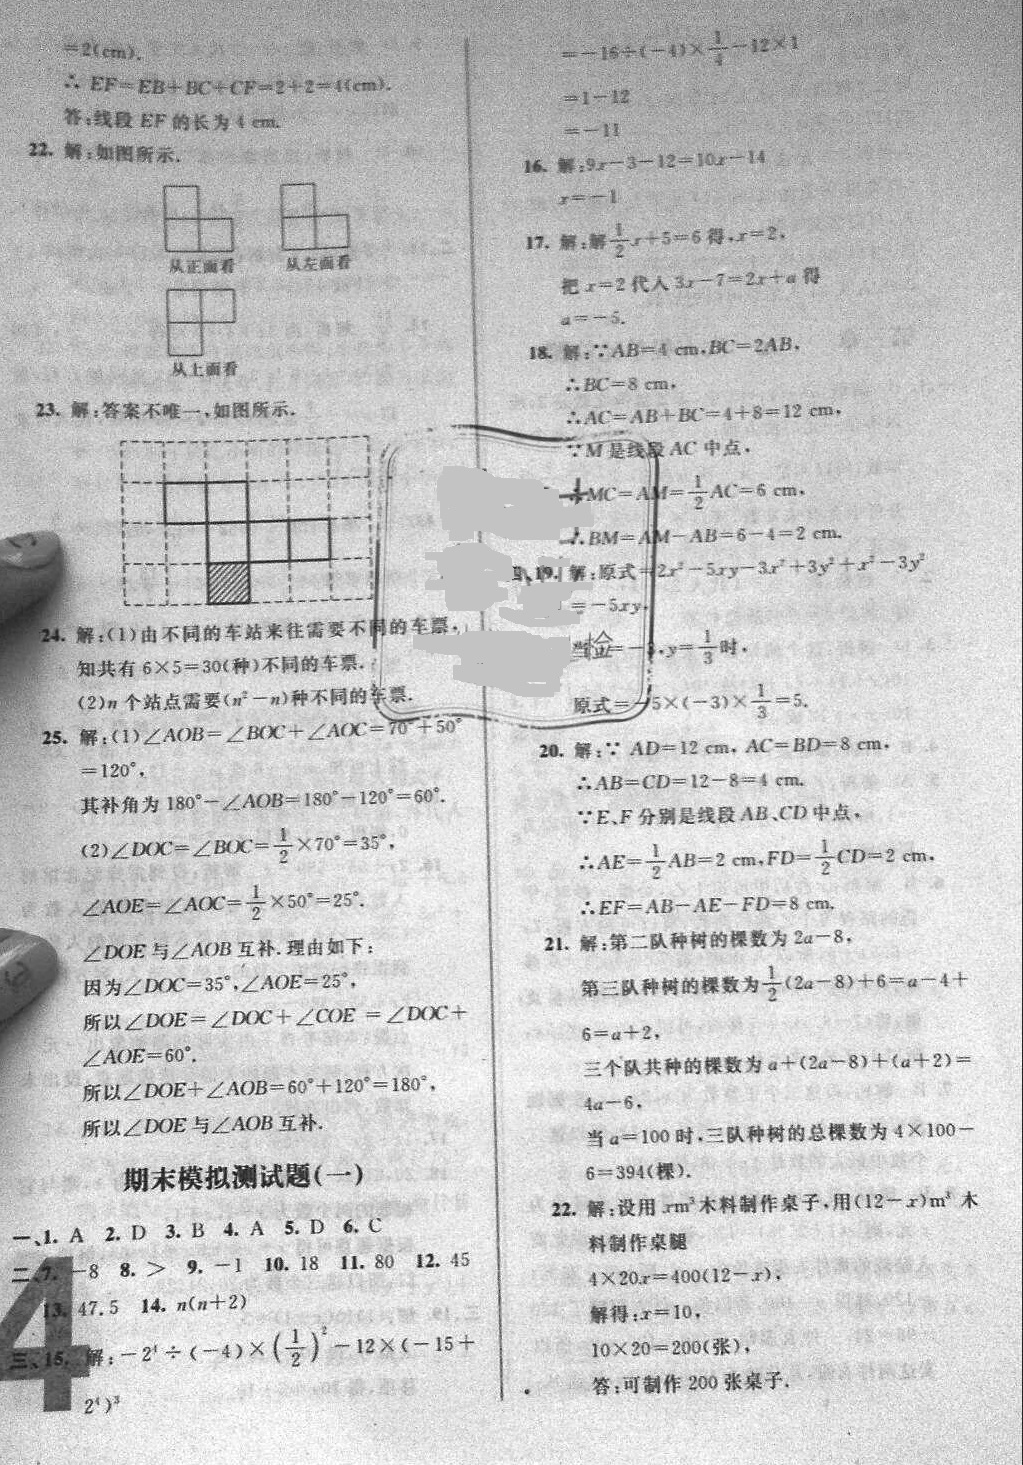 =2(cm).
∴ EF=EB+BC+CF=2+2=4(cm).
答:线段 EF 的长为 4 cm.
22. 解:如图所示.
从正面看 从左面看
从上面看
23. 解:答案不唯一,如图所示.
24. 解:(1)由不同的车站来往需要不同的车票,
知共有 6×5=30(种)不同的车票.
(2)n 个站点需要(n²-n)种不同的车票.
25. 解:(1)∠AOB=∠BOC+∠AOC=70°+50°
=120°,
其补角为 180°-∠AOB=180°-120°=60°.
(2)∠DOC=∠BOC=1/2×70°=35°,
∠AOE=∠AOC=1/2×50°=25°.
∠DOE 与∠AOB 互补.理由如下:
因为∠DOC=35°,∠AOE=25°,
所以∠DOE=∠DOC+∠COE =∠DOC+
∠AOE=60°.
所以∠DOE+∠AOB=60°+120°=180°,
所以∠DOE 与∠AOB 互补.
期末模拟测试题(一)
一、1. A 2. D 3. B 4. A 5. D 6. C
二、7. -8 8. > 9. -1 10. 18 11. 80 12. 45
13. 47.5 14. n(n+2)
三、15. 解:-2⁴÷(-4)×(1/2)²-12×(-15+
2⁴)³
4
=-16÷(-4)×1/4-12×1
=1-12
=-11
16. 解:9x-3-12=10x-14
x=-1
17. 解:解1/2x+5=6 得,x=2,
把 x=2 代入 3x-7=2x+a 得
a=-5.
18. 解:∵AB=4 cm,BC=2AB,
∴BC=8 cm,
∴AC=AB+BC=4+8=12 cm,
∵M 是线段 AC 中点,
∴MC=AM=1/2AC=6 cm,
∴BM=AM-AB=6-4=2 cm.
四、19. 解:原式=2x²-5xy-3x²+3y²+x²-3y²
=-5xy,
当 =-3,y=1/3时,
检
原式=-5×(-3)×1/3=5.
20. 解:∵ AD=12 cm, AC=BD=8 cm,
∴AB=CD=12-8=4 cm.
∵E、F 分别是线段 AB、CD 中点,
∴AE=1/2AB=2 cm,FD=1/2CD=2 cm.
∴EF=AB-AE-FD=8 cm.
21. 解:第二队种树的棵数为 2a-8,
第三队种树的棵数为1/2(2a-8)+6=a-4+
6=a+2,
三个队共种的棵数为 a+(2a-8)+(a+2)=
4a-6,
当 a=100 时,三队种树的总棵数为 4×100-
6=394(棵).
22. 解:设用 xm³ 木料制作桌子,用(12-x)m³ 木
料制作桌腿
4×20x=400(12-x),
解得:x=10,
10×20=200(张),
答:可制作 200 张桌子.